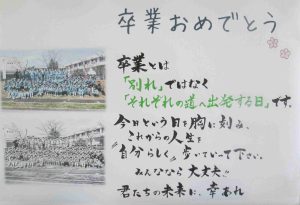 卒業おめでとう
卒業とは
「別れ」ではなく
「それぞれの道へ出発する日」です。
今日という日を胸に刻み、
これからの人生を
"自分らしく"歩いていって下さい。
みんななら大丈夫!!
君たちの未来に、幸あれ